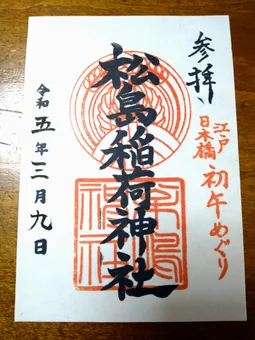 参拝
江戸
日本橋
初午めぐり
松島稲荷神社
令和五年三月九日